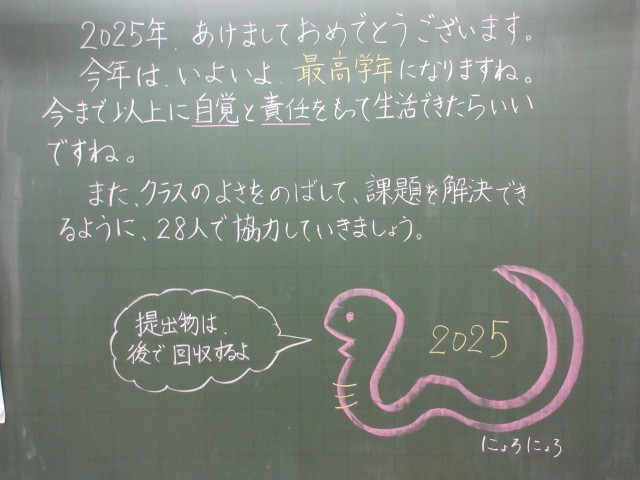 2025年、あけましておめでとうございます。
今年は、いよいよ、最高学年になりますね。
今まで以上に自覚と責任をもって生活できたらいい
ですね。
また、クラスのよさをのばして、課題を解決でき
るように、28人で協力していきましょう。
提出物は、
後で回収するよ
2025
にょろにょろ